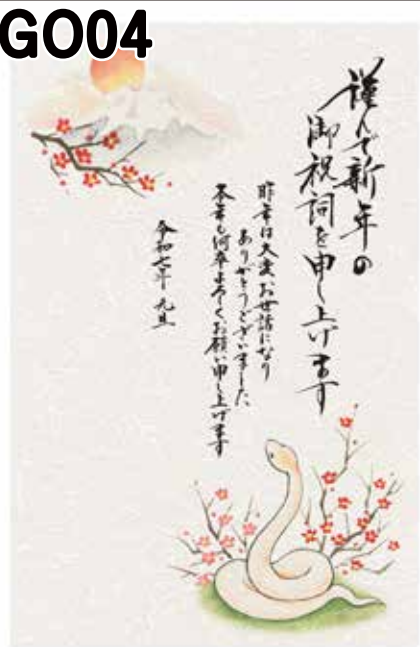 GO04
謹んで新年の
御祝詞を申し上げます
昨年は大変お世話になり
ありがとうございました
本年も何卒よろしくお願い申し上げます
令和七年 元旦